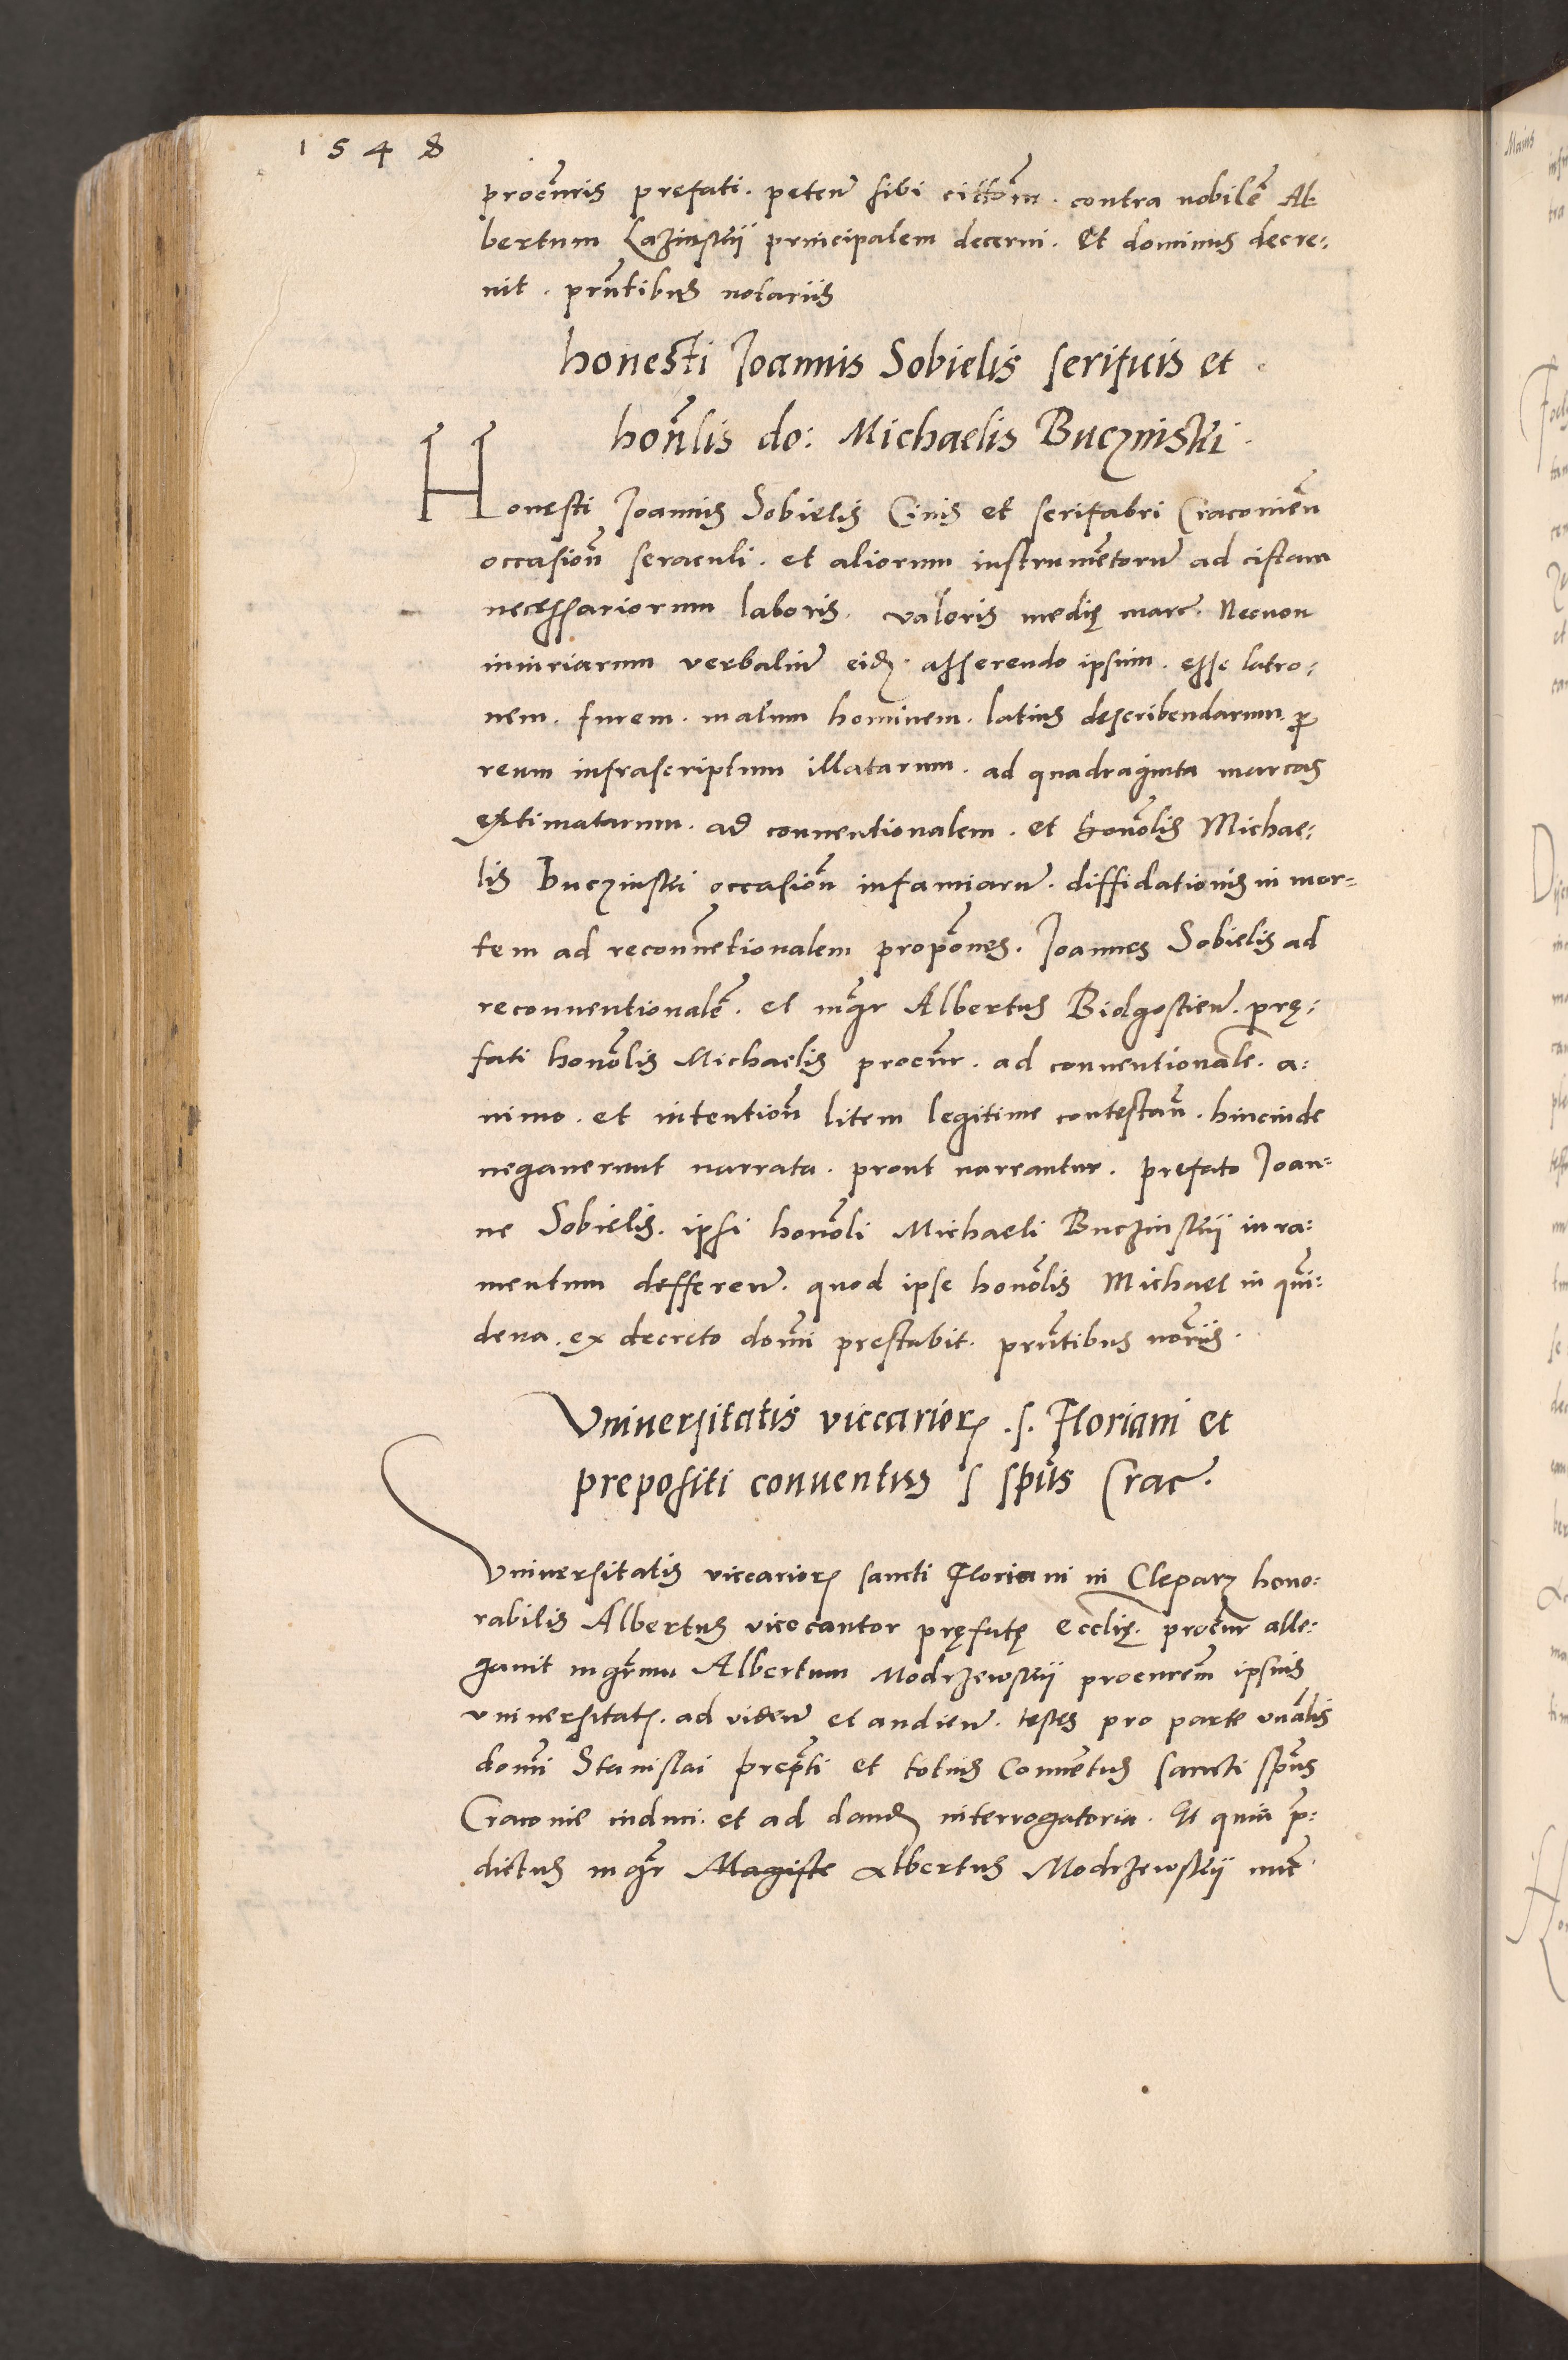 1548
procuris prefati. peten sibi cittom. contra nobilem Al-
bertum Lazinskii principalem decerni. Et dominus decre-
vit. pntibus notariis
honesti Joannis Sobielis serificis et
honlis do: Michaelis Buczinski.
Honesti Joannis Sobielis Civis et serifabri Cracovien
occasion seraculi. et aliorum instrumentoru ad cistam
necessariorum laboris. valoris medię marc. Necnon
iniuriarum verbaliu eidz. asserendo ipsum. esse latro-
nem. furem. malum hominem. latius describendarum. p
reum infrascriptum illatarum. ad quadraginta marcas
extimatarum. ad conventionalem. et honolis Michae-
lis Buczinski occasion infamiaru. diffidationis in mor-
tem ad reconnetionalem propones. Joannes Sobielis ad
reconventionale. et mgr Albertus Bidgostien. prę-
fati honolis Michaelis procur. ad conventionale. a-
nimo. et intention litem legitime contestan. hincinde
negaverunt narrata. prout narrantur. prefato Joan-
ne Sobielis. ipsi honoli Michaeli Buczinskii iura-
mentum defferen. quod ipse honolis Michael in qui-
dena. ex decreto domi prestabit. pntibus noriis.
Universitatis viccarior .s. Floriani et
prepositi conventus s spus Crac.
Universitatis viccarior sancti Floriani in Cleparz hono-
rabilis Albertus vicecantor pręfatę ecclię. procur alle-
gavit mgrmu Albertum Modrzewskii procurem ipsius
universitatis. ad viden et audien. testes pro parte vnalis
domi Stanislai prepti et totius Conventus sancti spus
Cracovie induci. et ad dandz interrogatoria. Et quia p-
dictus mgr Magiste Albertus Modrzewskii